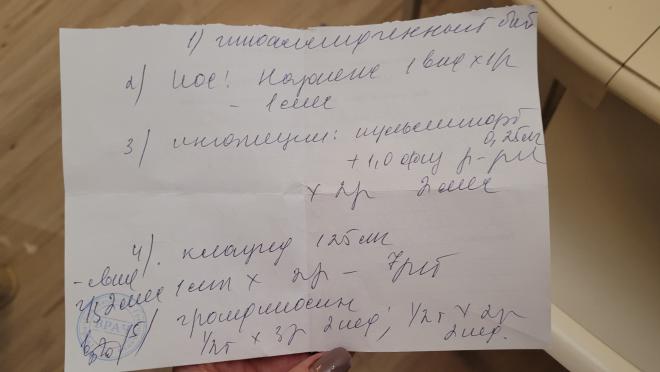 1) гипоаллергенный быт
2) Нос! Назонекс 1 вид х 1р
- 1 мес
3) ингаляции: пульмикорт
0,25мг
+ 1,0 физ р-ра
х 2р 2 мес
4). клацид 125 мг
1 х 2р - 7
5) гроприносин
1/2т х 3р 2 нед; 1/2т х 2р
2 нед.
ВРАЧ